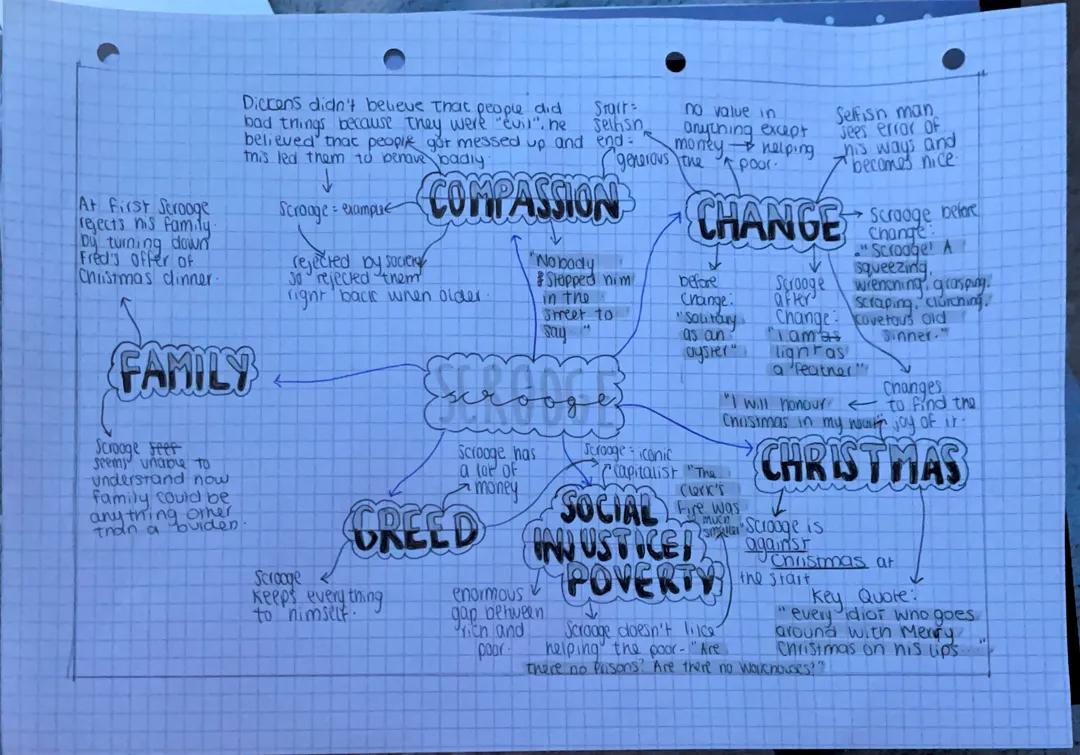 Dickens didn't believe that people did
bad things because they were "evil". he
believed that people got messed up and
this led them to behave badly.
Start =
selfish
end =
generous
no value in
anything except
money → helping
the poor.
Selfish man
sees error of
his ways and
becomes nice.
COMPASSION
Scrooge = example
rejected by society
so rejected them
right back when older.
"Nobody
stopped him
in the
street to
say "
CHANGE
Scrooge before
change:
"Scrooge! A
squeezing,
wrenching, grasping,
scraping, clutching,
covetous old
sinner."
before
change:
"solitary
as an
oyster"
Scrooge
after
change:
"I am as
light as
a feather"
At first Scrooge
rejects his family
by turning down
Fred's offer of
Christmas dinner.
FAMILY
Scrooge
seems unable to
understand how
family could be
anything other
than a burden.
SCROOGE
scrooge
changes
to find the
joy of it.
"I will honour
Christmas in my
CHRISTMAS
Scrooge is
against
Christmas at
the start
Key Quote:
"every idiot who goes
around with Merry
Christmas on his lips "
Scrooge has
a lot of
money
GREED
Scrooge
keeps everything
to himself.
Scrooge = iconic
capitalist
"The
clerk's
fire was
much
smaller"
SOCIAL
INJUSTICE/
POVERTY
enormous
gap between
rich and
poor.
Scrooge doesn't like
helping the poor - "Are
there no Prisons? Are there no Workhouses?"